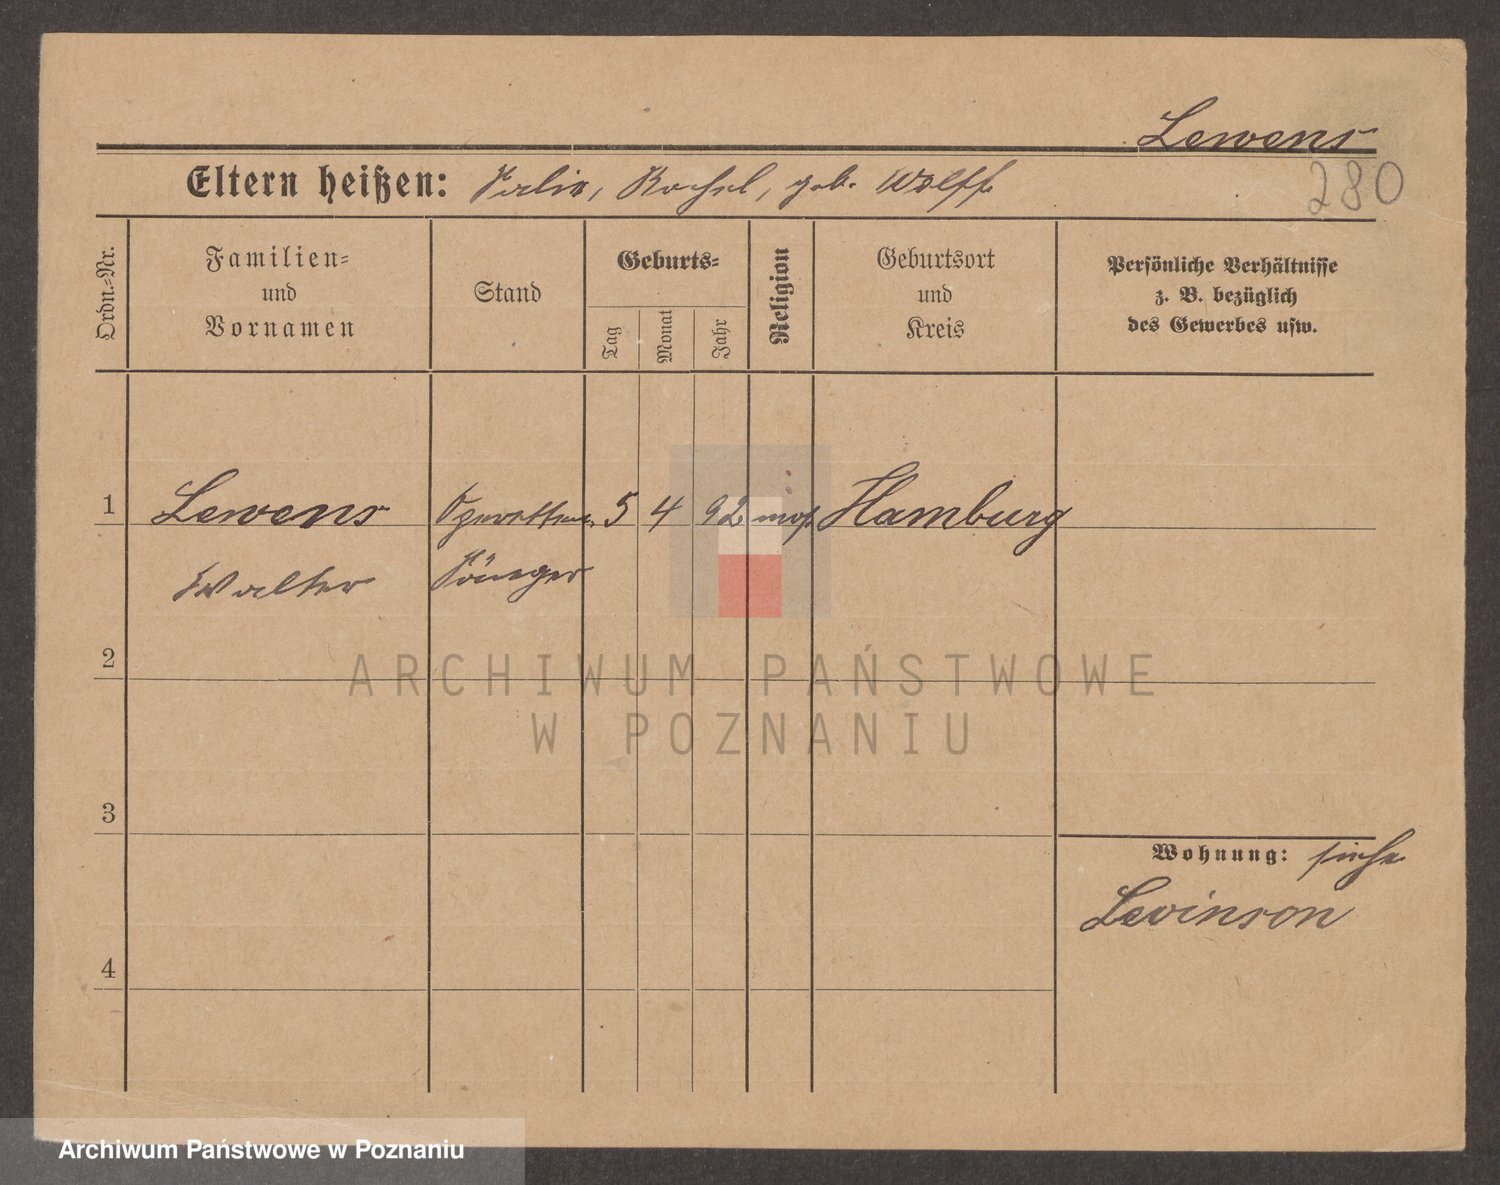 Lewens
Eltern heißen: Rachel, geb. Wolff
280
Ordn.-Nr.
Familien-
und
Vornamen
Stand
Geburts-
Tag
Monat
Jahr
Religion
Geburtsort
und
Kreis
Persönliche Verhältnisse
z. B. bezüglich
des Gewerbes usw.
1 Lewens Operetten 5 4 92 mos. Hamburg
Walter Sänger
2
ARCHIWUM PAŃSTWOWE
W POZNANIU
3
Wohnung: siehe
Levinson
4
Archiwum Państwowe w Poznaniu